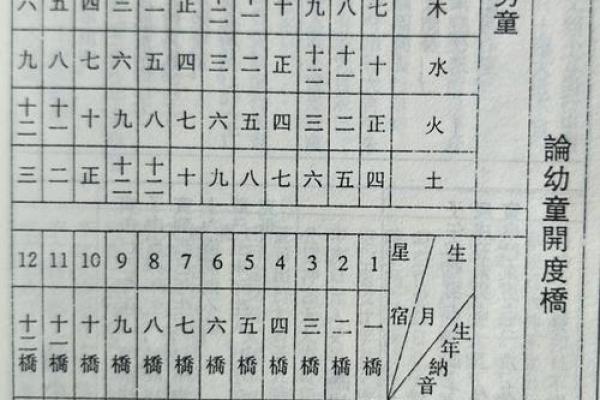 論幼童開度橋
童
木 七 八 九 十 十一 十二 正 二 三 四 五 六
水 十 十一 十二 正 二 三 四 五 六 七 八 九
火 正 二 三 四 五 六 七 八 九 十 十一 十二
土 四 五 六 七 八 九 十 十二 十二 正 二 三
生月
生年納音
星宿
1 2 3 4 5 6 7 8 9 10 11 12
一橋 二橋 三橋 四橋 五橋 六橋 七橋 八橋 九橋 十橋 十一橋 十二橋